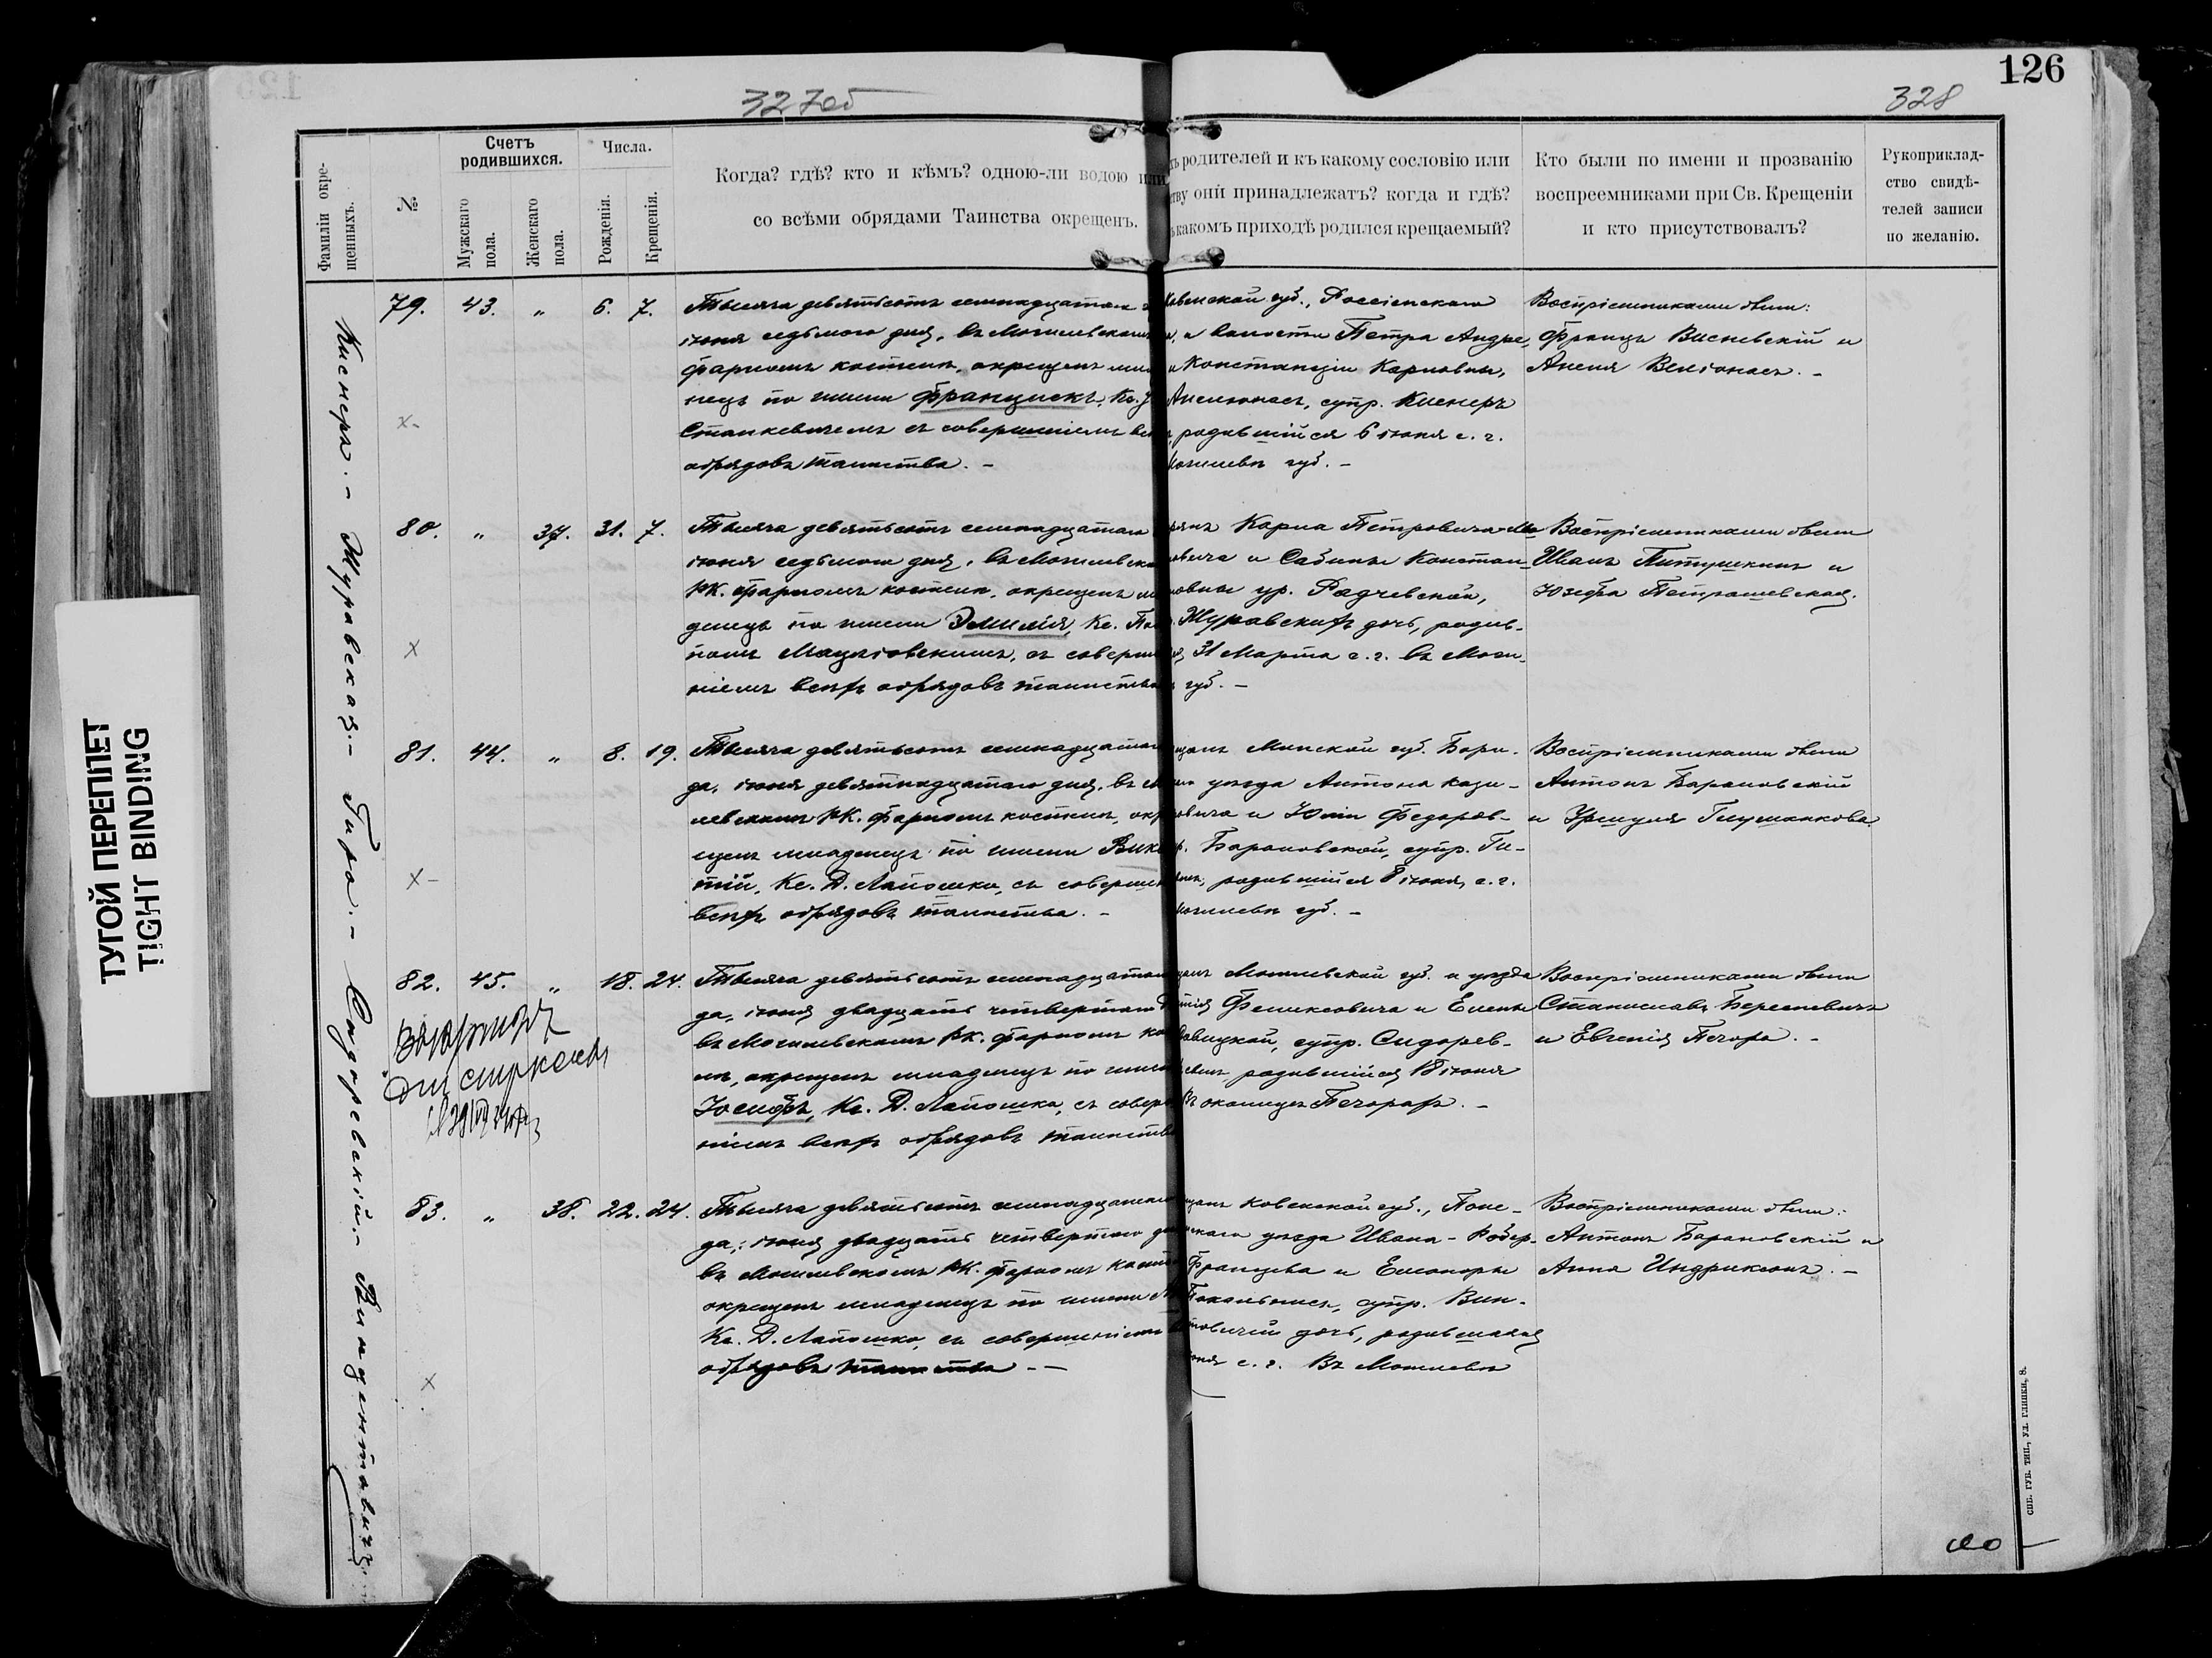 126
327об
328
Фамиліи окре-
щенныхъ.
№
Счетъ
родившихся.
Мужскаго
пола.
Женскаго
пола.
Числа.
Рожденія.
Крещенія.
Когда? гдѣ? кто и кѣмъ? одною-ли водою или
со всѣми обрядами Таинства окрещенъ.
родителей и къ какому сословію или
они принадлежатъ? когда и гдѣ?
какомъ приходѣ родился крещаемый?
Кто были по имени и прозванію
воспреемниками при Св. Крещеніи
и кто присутствовалъ?
Рукоприклад-
ство свидѣ-
телей записи
по желанію.
Киснеръ. - Журавская. - Гиро. - Сидоревскій. -
79. 43. " 6. 7.
Тысяча девятьсотъ семнадцатаго
іюня седьмого дня, въ Могилевскомъ
фарномъ костелѣ, окрещенъ мла
нецъ по имени Францискъ, Кс.
Станкевичемъ съ совершеніемъ
обрядовъ таинства. -
Ковенской губ., Россіенскаго
и волости Петра Андре,
и Констанціи Карповны,
супр. Киснеръ
родившійся 6 іюня с. г.
Могилевѣ губ. -
Воспріемниками были:
Францъ Висневскій и
Анеля
80. " 37. 31. 7.
Тысяча девятьсотъ семнадцатаго
іюня седьмого дня, въ Могилевско
РК. фарномъ костелѣ, окрещенъ
денецъ по имени Эмилія, Кс.
съ соверше
ніемъ всѣхъ обрядовъ таинства
Карла Петровича
овича и Сабины Констан-
ур. Радчевской,
Журавскихъ дочь, родив-
31 Марта с. г. въ Моги-
губ. -
Воспріемниками были
Иванъ Питушкинъ и
Юзефа Петрашевская.
81. 44. " 8. 19.
Тысяча девятьсотъ семнадцатаго
да, іюня девятнадцатаго дня, въ
левскомъ РК. фарномъ костелѣ, окр
щенъ младенецъ по имени Вик
тій, Кс. Д. Лапошко, съ соверше
всѣхъ обрядовъ таинства. -
Минской губ. Бори-
уѣзда Антона Кази-
овича и Юліи Федоров-
Барановской, супр. Ги-
родившійся 8 іюня, с. г.
Могилевѣ губ. -
Воспріемниками были
Антонъ Барановскій
и Уршуля Глушанкова
82. 45. " 18. 24.
Тысяча девятьсотъ семнадцатаго
да, іюня двадцать четвертаго
въ Могилевскомъ РК. фарномъ ко
лѣ, окрещенъ младенецъ по име
Іосифъ, Кс. Д. Лапошко, съ совер
ніемъ всѣхъ обрядовъ таинств
Могилевской губ. и уѣзда
Феликсовича и Елены
супр. Сидорев-
родившійся 18 іюня
Въ околицѣ Печорахъ. -
Воспріемниками были
Станиславъ Бересневичъ
и Евгенія Печора. -
83. " 38. 22. 24.
Тысяча девятьсотъ семнадцатаго
да, іюня двадцать четвертаго
въ Могилевскомъ РК. фарномъ косте
окрещенъ младенецъ по имени
Кс. Д. Лапошко, съ совершеніемъ
обрядовъ таинства - -
Ковенской губ., Поне-
уѣзда Ивана - Робер-
Францева и Елеоноры
супр. Вин-
дочь, родившаяся
с. г. Въ Могилевѣ
Воспріемниками были:
Антонъ Барановскій и
Анна Индриксонъ. -
ТУГОЙ ПЕРЕПЛЕТ
TIGHT BINDING
СПБ. ГУБ. ТИП., УЛ. ГЛИНКИ, 8.